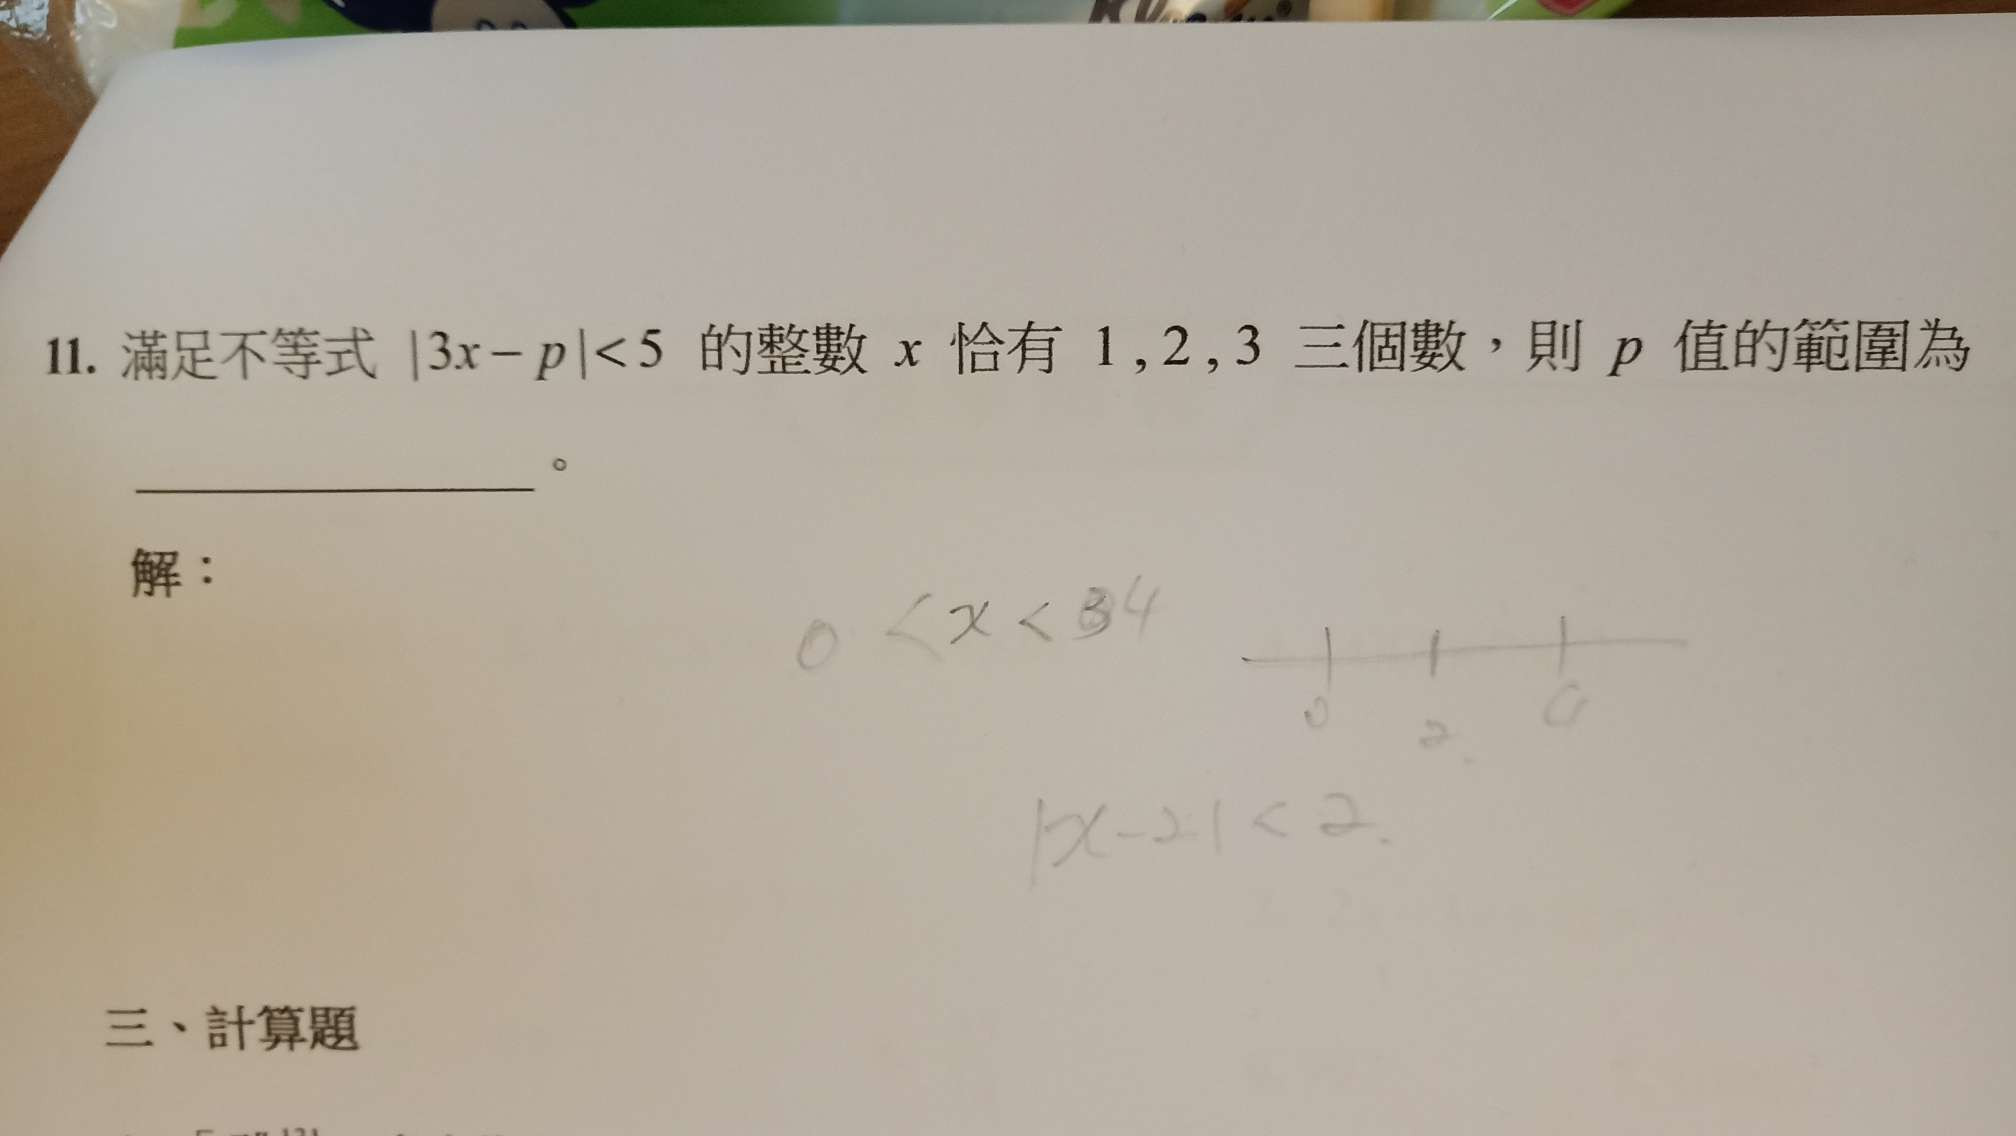 11. 滿足不等式 |3x－p|<5 的整數 x 恰有 1 , 2 , 3 三個數，則 p 值的範圍為
＿＿＿＿＿＿＿。
解：
0 < x < 34
0 2
|x-2| < 2.
三、計算題